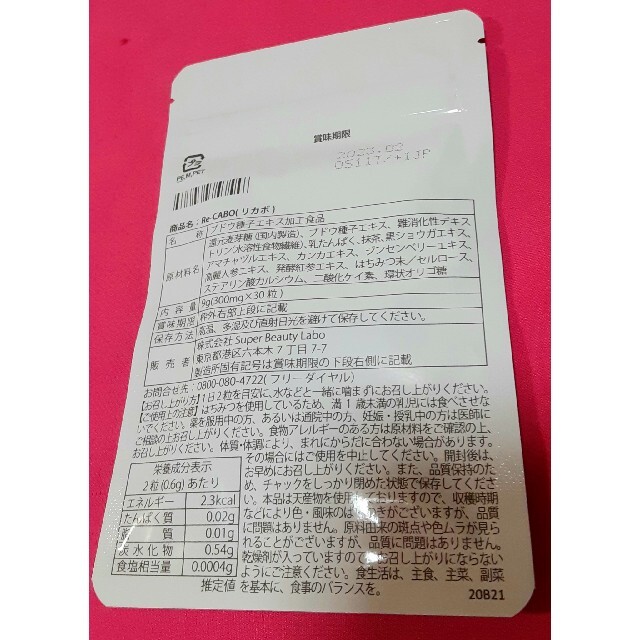 賞味期限
2023.02
OS117/+IJP
PE,M,PET
商品名：Re.CABO(リカボ)
名 称 ブドウ種子エキス加工食品
原材料名 還元麦芽糖(国内製造)、ブドウ種子エキス、難消化性デキス
トリン(水溶性食物繊維)、乳たんぱく、抹茶、黒ショウガエキス、
アマチャヅルエキス、カンカエキス、ジンセンベリーエキス、
高麗人参エキス、発酵紅参エキス、はちみつ末／セルロース、
ステアリン酸カルシウム、二酸化ケイ素、環状オリゴ糖
内 容 量 9g(300mg×30粒)
賞味期限 枠外右部上段に記載
保存方法 高温、多湿及び直射日光を避けて保存してください。
販 売 者 株式会社 Super Beauty Labo
東京都港区六本木7丁目7-7
製造所固有記号は賞味期限の下段右側に記載
お問合せ先：0800-080-4722(フリーダイヤル)
【お召し上がり方】1日2粒を目安に、水などと一緒に噛まずにお召し上がりください。
【ご使用上の注意】はちみつを使用しているため、満1歳未満の乳児には食べさせな
いでください。薬を服用中の方、あるいは通院中の方、妊娠・授乳中の方は医師に
ご相談の上お召し上がりください。食物アレルギーのある方は原材料をご確認の上、
お召し上がりください。体質・体調により、まれにからだに合わない場合があります。
その場合にはご使用を中止してください。開封後は、
お早めにお召し上がりください。また、品質保持のた
め、チャックをしっかり閉めた状態で保存してくださ
い。本品は天産物を使用しておりますので、収穫時期
などにより色・風味のばらつきがございますが、品質
に問題はありません。原料由来の斑点や色ムラが見ら
れることがございますが、品質に問題はありません。
乾燥剤が入っていますのでお召し上がりにならない
ようにご注意ください。食生活は、主食、主菜、副菜
を基本に、食事のバランスを。
栄養成分表示
2粒(0.6g)あたり
エネルギー 2.3kcal
たんぱく質 0.02g
脂 質 0.01g
炭水化物 0.54g
食塩相当量 0.0004g
推定値
20B21